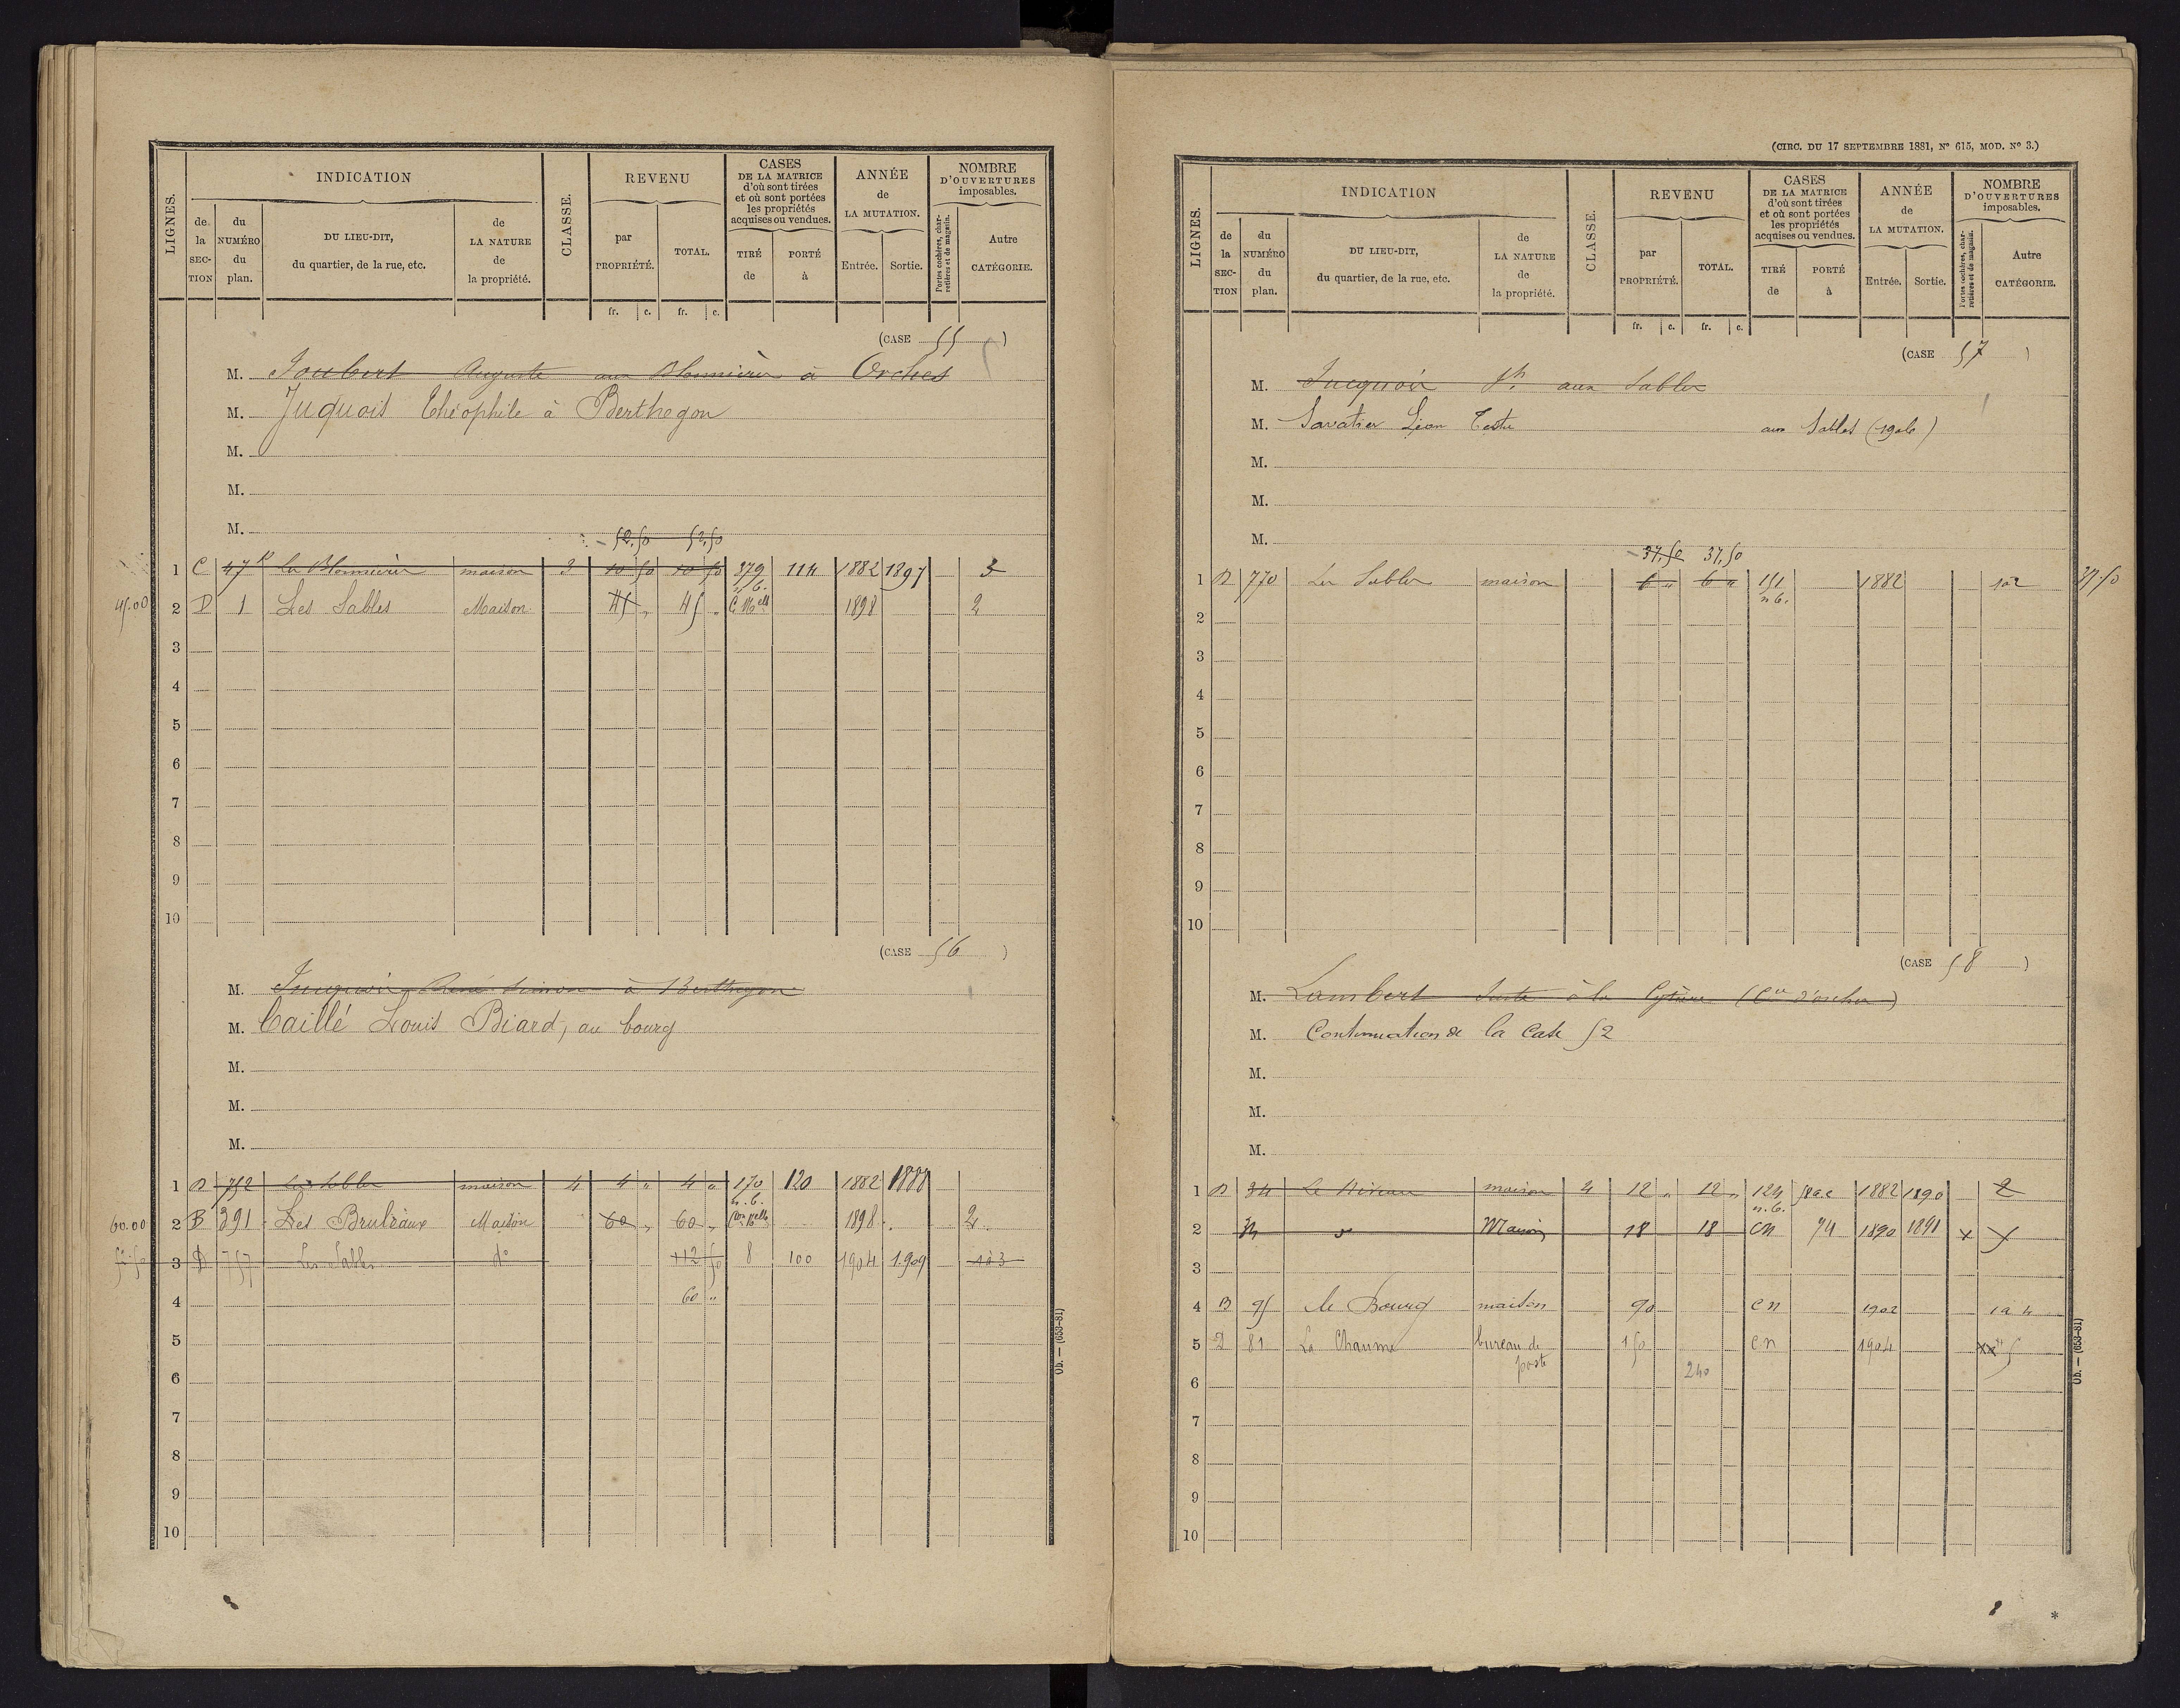 LIGNES.
INDICATION
de la SECTION
du NUMÉRO du plan.
DU LIEU-DIT, du quartier, de la rue, etc.
de LA NATURE de la propriété.
CLASSE.
REVENU
par PROPRIÉTÉ.
TOTAL.
fr. c. fr. c.
CASES DE LA MATRICE d'où sont tirées et où sont portées les propriétés acquises ou vendues.
TIRÉ de
PORTÉ à
ANNÉE de LA MUTATION.
Entrée. Sortie.
NOMBRE D'OUVERTURES imposables.
Portes cochères, charretières et de magasin.
Autre CATÉGORIE.
(CASE 55)
M. Joubert Auguste aux à Orches
M. Juquois Théophile à Berthegon
M.
M.
M.
52,50 52,50
1 C 47 maison 3 10 50 10 50 379 n.b. 114 1882 1897 3
45.00 2 D 1 Les Sables Maison 45 „ 45 „ 1898 2
3
4
5
6
7
8
9
10
(CASE 56)
M. à Berthegon
M. Caillé Louis Biard, au bourg
M.
M.
M.
1 D 752 Les Sables maison 4 4 „ 4 „ 170 n.b. 120 1882 1888
60.00 2 B 391 Les Maison 60 „ 60 „ 1898 2
3 D 757 Les Sables d° 112 50 8 100 1904 1909 1à3
4 60 „
5
6
7
8
9
10
Ob. — (653-81)
(CIRC. DU 17 SEPTEMBRE 1881, N° 615, MOD. N° 3.)
LIGNES.
INDICATION
de la SECTION
du NUMÉRO du plan.
DU LIEU-DIT, du quartier, de la rue, etc.
de LA NATURE de la propriété.
CLASSE.
REVENU
par PROPRIÉTÉ.
TOTAL.
fr. c. fr. c.
CASES DE LA MATRICE d'où sont tirées et où sont portées les propriétés acquises ou vendues.
TIRÉ de
PORTÉ à
ANNÉE de LA MUTATION.
Entrée. Sortie.
NOMBRE D'OUVERTURES imposables.
Portes cochères, charretières et de magasin.
Autre CATÉGORIE.
(CASE 57)
M. aux Sables
M. Savatier Léon aux Sables (1906)
M.
M.
M.
37,50 37,50
1 D 770 Les Sables maison 6 „ 6 „ 151 n.b. 1882 1à2 37.50
2
3
4
5
6
7
8
9
10
(CASE 58)
M. Lambert à la
M. Continuation de la Case 52
M.
M.
M.
1 D 34 Le maison 4 12 „ 12 „ 124 n.b. 1882 1890 2
2 Maison 18 18 CN 74 1890 1891 x
3
4 B 95 le Bourg maison 90 CN 1902 1 à 4
5 D 81 La Chaume bureau de poste 150 CN 1904 5
6 240
7
8
9
10
Ob. — (653-81)
*